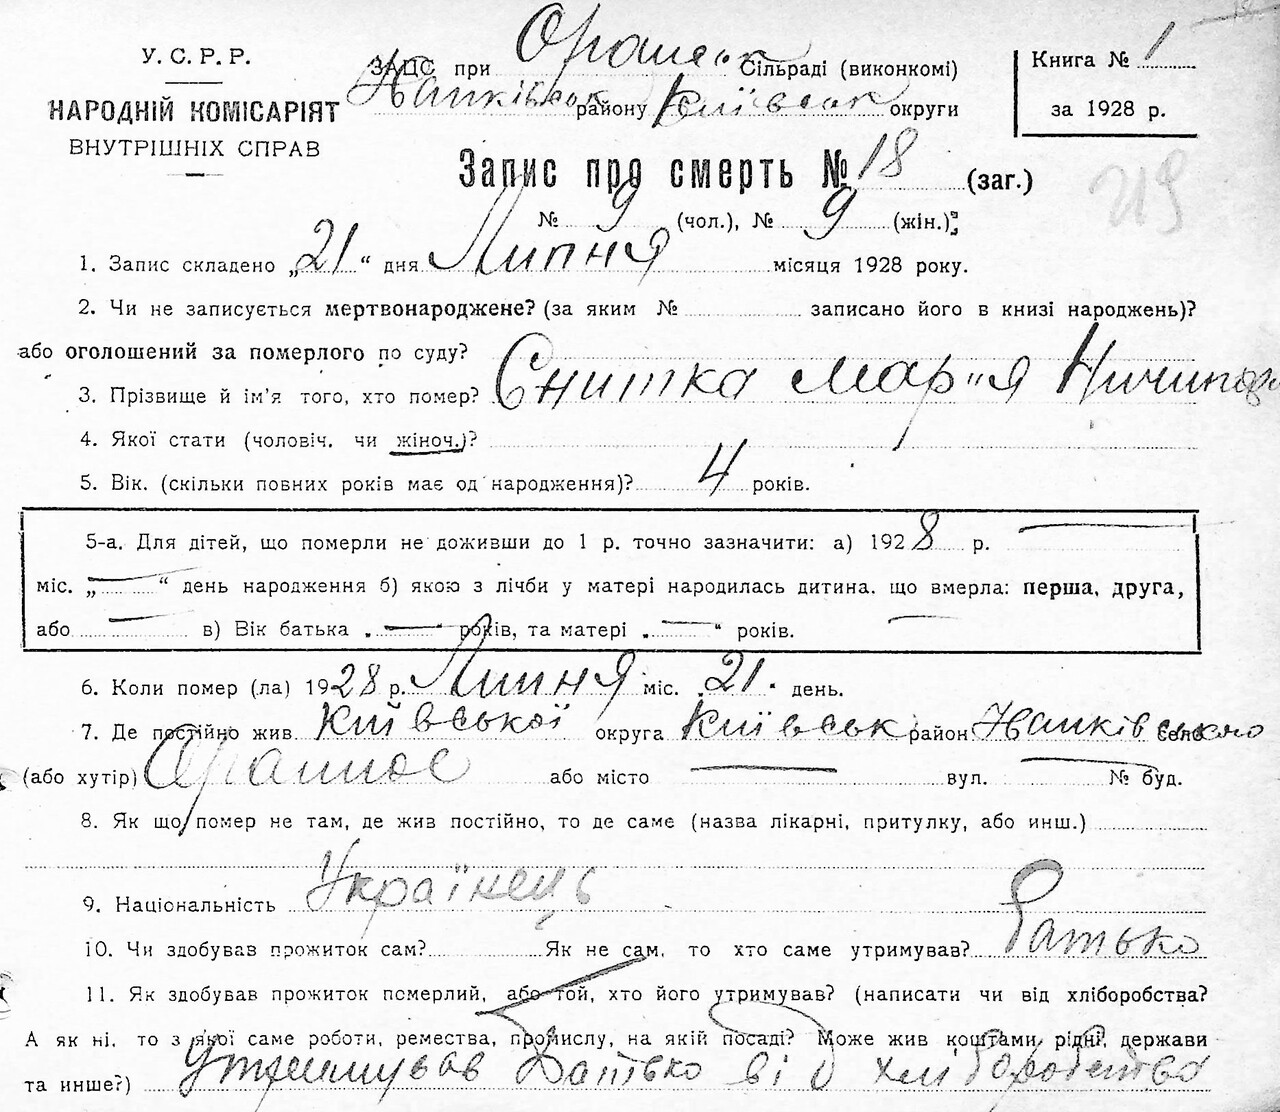 У. С. Р. Р.
НАРОДНІЙ КОМІСАРІЯТ
ВНУТРІШНІХ СПРАВ
ЗАЦС при Оранськ Сільраді (виконкомі)
району Київськ округи
Книга № 1
за 1928 р.
Запис про смерть № 18 (заг.)
219
№ 9 (чол.), № 9 (жін.)
1. Запис складено „21“ дня Липня місяця 1928 року.
2. Чи не записується мертвонароджене? (за яким № записано його в книзі народжень)?
або оголошений за померлого по суду?
3. Прізвище й ім'я того, хто помер? Снитка Мария Ничипор
4. Якої стати (чоловіч. чи жіноч.)?
5. Вік. (скільки повних років має од народження)? 4 років.
5-а. Для дітей, що померли не доживши до 1 р. точно зазначити: а) 1928 р. —
міс. „—“ день народження б) якою з лічби у матері народилась дитина. що вмерла: перша, друга,
або — в) Вік батька „—“ років, та матері „—“ років. —
6. Коли помер (ла) 1928 р. Липня міс. 21. день.
7. Де постійно жив Київської округа Київськ район село
(або хутір) Оранное або місто — вул. — № буд.
8. Як що помер не там, де жив постійно, то де саме (назва лікарні, притулку, або инш.)
9. Національність Українець
10. Чи здобував прожиток сам? Як не сам, то хто саме утримував? Батько
11. Як здобував прожиток померлий, або той, хто його утримував? (написати чи від хліборобства?
А як ні. то з якої саме роботи, ремества, промислу, на якій посаді? Може жив коштами рідні, держави
та инше?) Утримував Батько від хліборобства